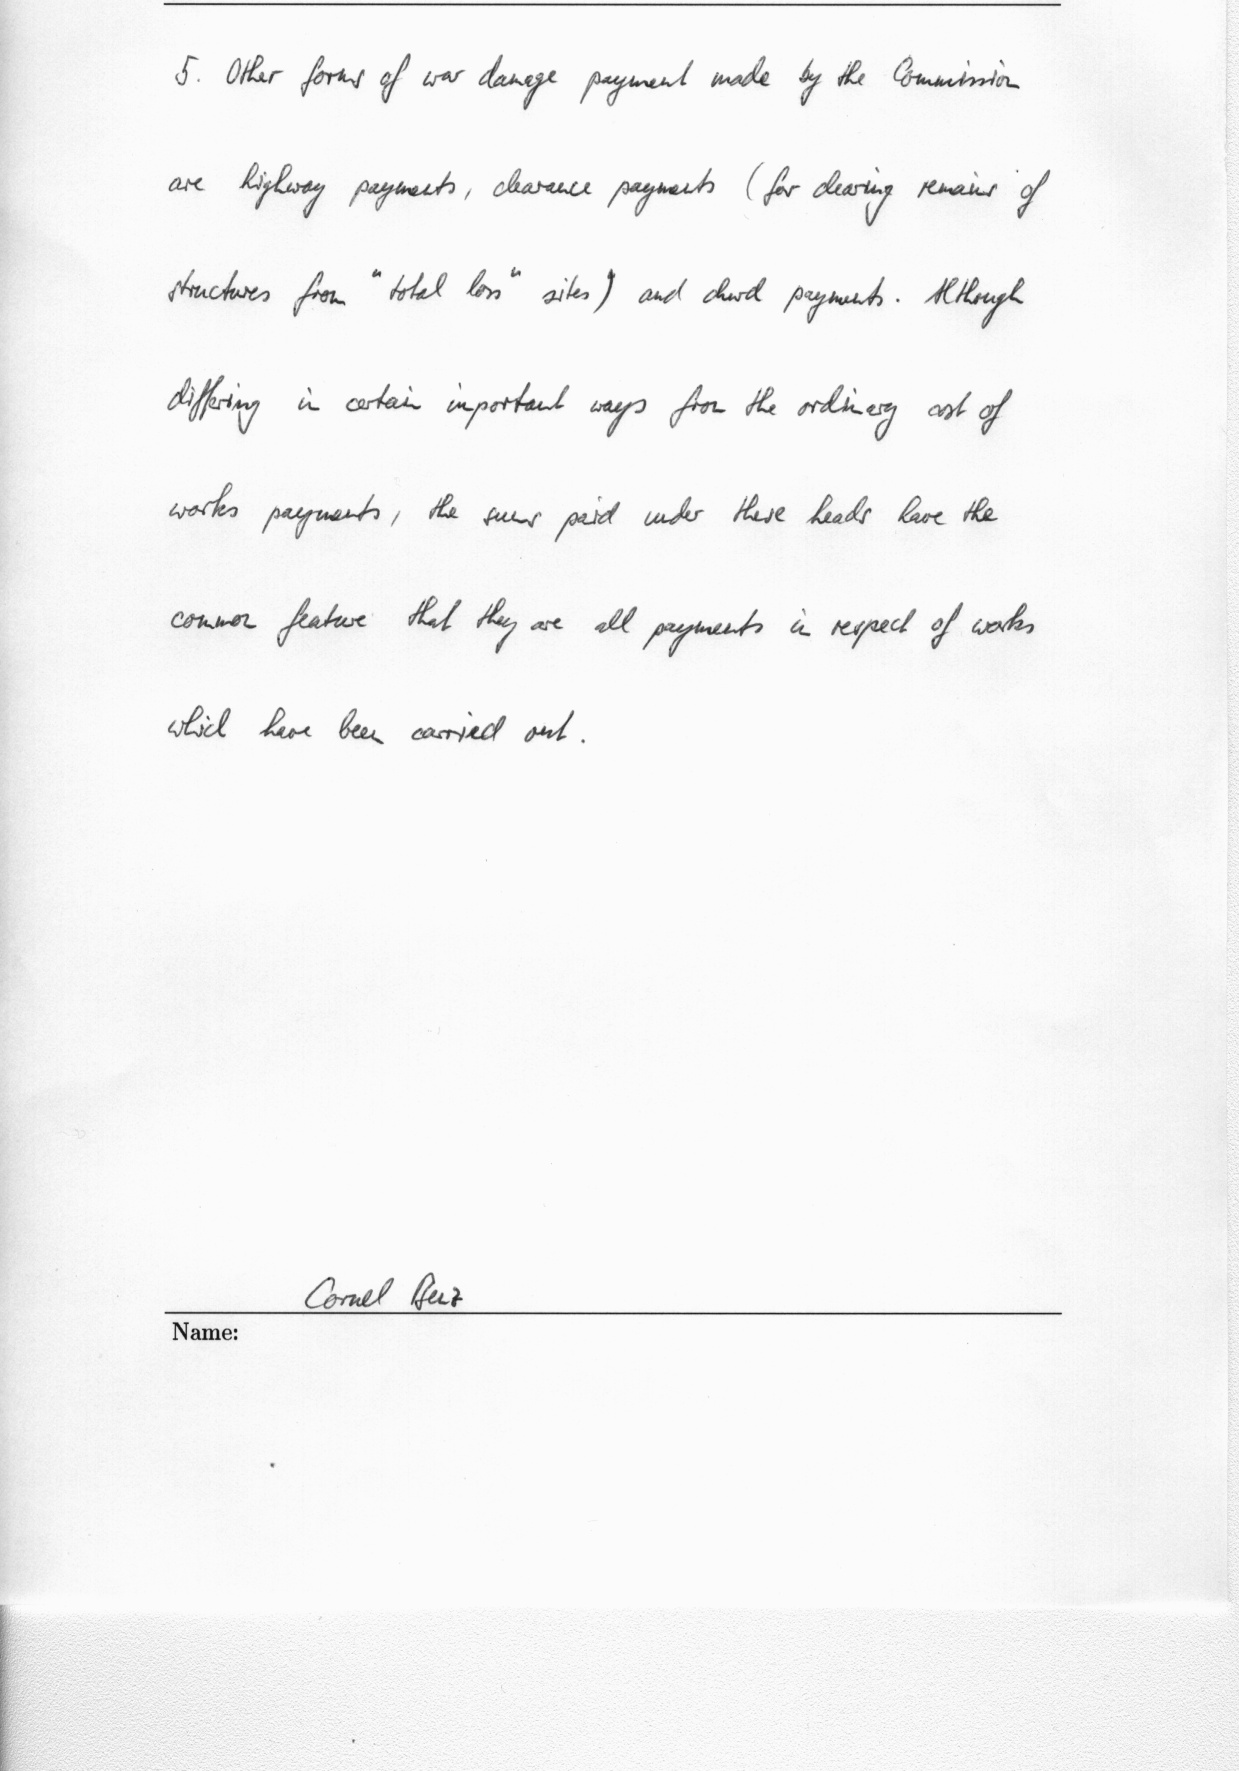 5. Other forms of war damage payment made by the Commission
are highway payments, clearance payments (for clearing remains of
structures from "total loss" sites) and church payments. Although
differing in certain important ways from the ordinary cost of
works payments, the sums paid under these heads have the
common feature that they are all payments in respect of works
which have been carried out.
Cornel
Name: